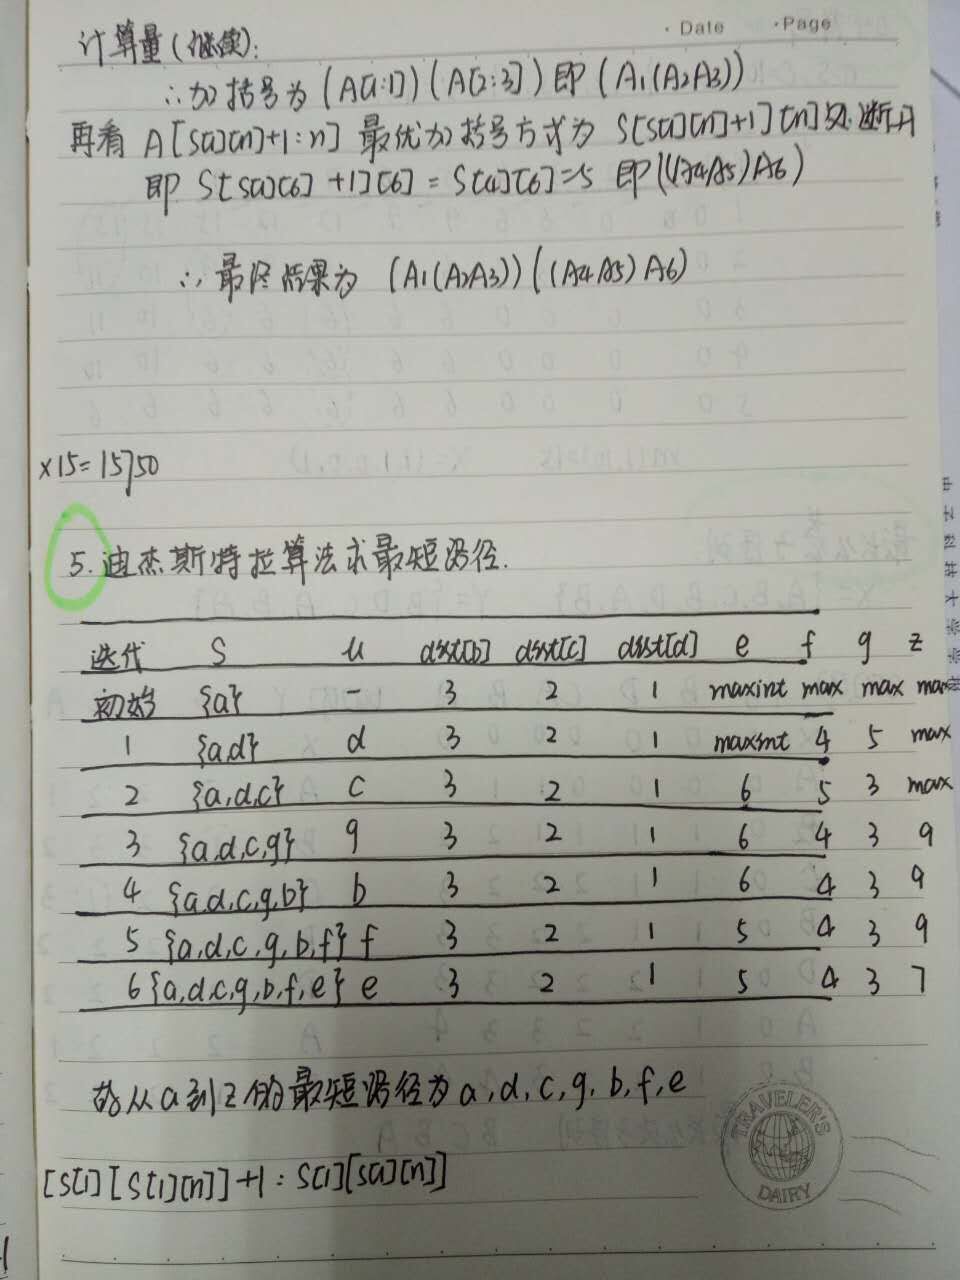 · Date · Page
计算量(继续):
∴加括号为 (A[1:1])(A[2:3]) 即 (A1(A2A3))
再看 A[S[1][n]+1:n] 最优加括号方式为 S[S[1][n]+1][n]处断开
即 S[S[1][6]+1][6]=S[4][6]=5 即((A4A5)A6)
∴最终结果为 (A1(A2A3))((A4A5)A6)
×15=15750
5.迪杰斯特拉算法求最短路径.
迭代 S u dist[b] dist[c] dist[d] e f g z
初始 {a} - 3 2 1 maxint max max max
1 {a,d} d 3 2 1 maxint 4 5 max
2 {a,d,c} c 3 2 1 6 5 3 max
3 {a,d,c,g} g 3 2 1 6 4 3 9
4 {a,d,c,g,b} b 3 2 1 6 4 3 9
5 {a,d,c,g,b,f} f 3 2 1 5 4 3 9
6 {a,d,c,g,b,f,e} e 3 2 1 5 4 3 7
故从a到z的最短路径为a,d,c,g,b,f,e
TRAVELER'S
DAIRY
[S[1][S[1][n]]+1:S[1][S[1][n]]